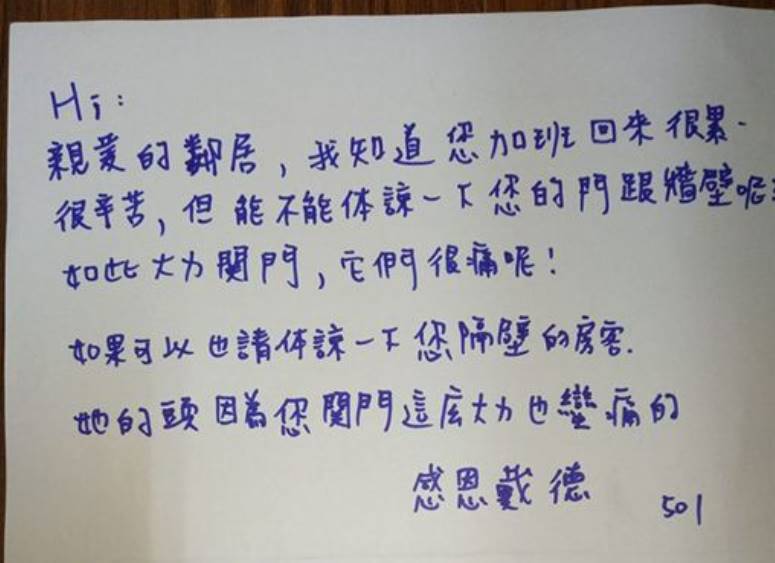 Hi:
親愛的鄰居，我知道您加班回來很累、
很辛苦，但能不能体諒一下您的門跟牆壁呢?
如此大力關門，它們很痛呢！
如果可以也請体諒一下您隔壁的房客.
她的頭因為您關門這麼大力也蠻痛的
感恩戴德
501